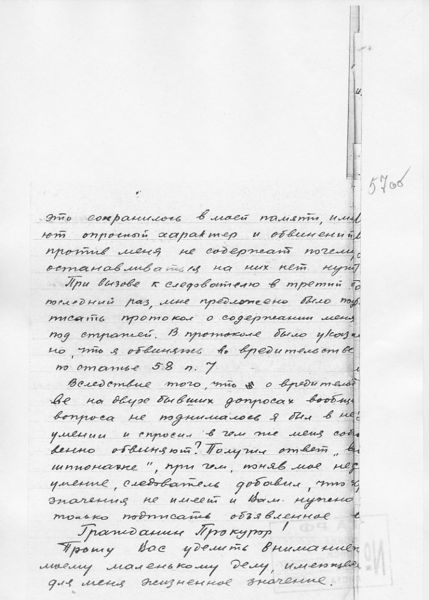 57об
это сохранилось в моей памяти, име
ют опросный характер и обвинений
против меня не содержат почему
останавливаться на них нет нуж
При вызове к следователю в третий
последний раз, мне предложено было по
писать протокол о содержании меня
под стражей. В протоколе было указа
но, что я обвиняюсь во вредительстве
по статье 58 п. 7
Вследствие того, что о вредитель
ве на двух бывших допросах вообще
вопроса не поднималось я был в не
умении и спросил в чем же меня соб
венно обвиняют? Получил ответ „в
шпионаже", при чем, поняв мое нед
умение, следователь добавил, что
значения не имеет и Вам нужно
только подписать объявленное
Гражданин Прокурор!
Прошу Вас уделить внимание
моему маленькому делу, имеющее
для меня жизненное значение.